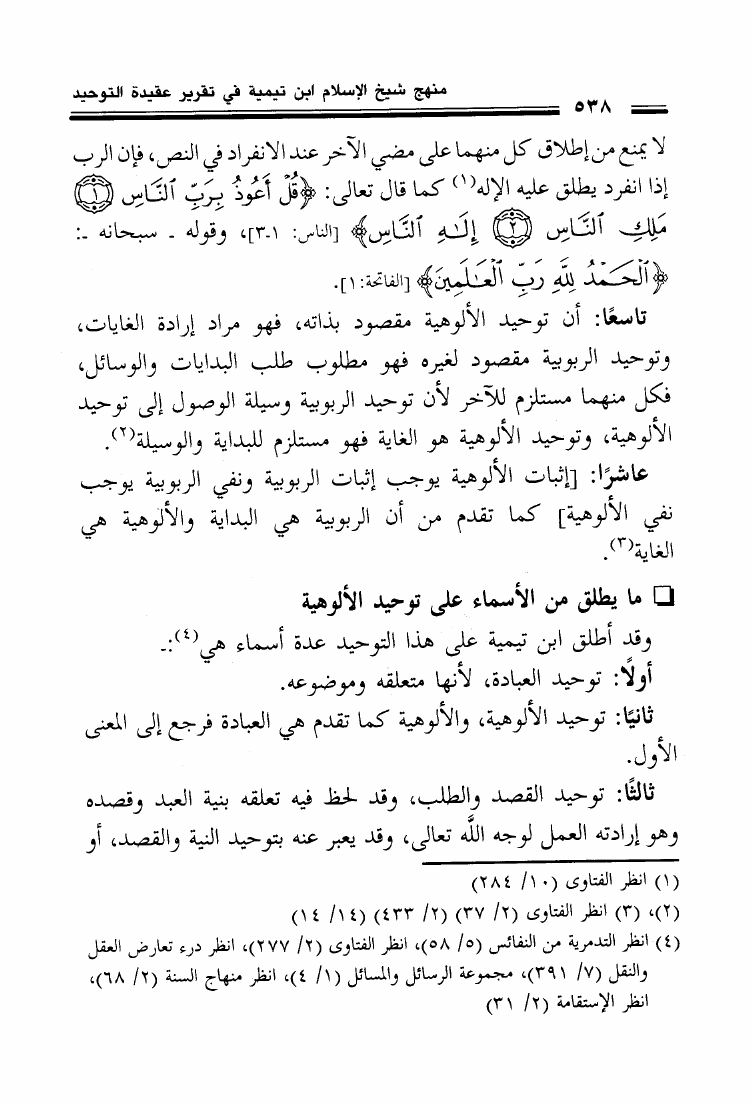 منهج شيخ الإسلام ابن تيمية في تقرير عقيدة التوحيد
٥٣٨
لا يمنع من إطلاق كل منهما على مضي الآخر عند الانفراد في النص، فإن الرب
إذا انفرد يطلق عليه الإله(١) كما قال تعالى: ﴿قُلْ أَعُوذُ بِرَبِّ ٱلنَّاسِ ١
مَلِكِ ٱلنَّاسِ ٢ إِلَٰهِ ٱلنَّاسِ﴾ [الناس: ١-٣]، وقوله ـ سبحانه ـ:
﴿ٱلْحَمْدُ لِلَّهِ رَبِّ ٱلْعَٰلَمِينَ﴾ [الفاتحة: ١].
تاسعًا: أن توحيد الألوهية مقصود بذاته، فهو مراد إرادة الغايات،
وتوحيد الربوبية مقصود لغيره فهو مطلوب طلب البدايات والوسائل،
فكل منهما مستلزم للآخر لأن توحيد الربوبية وسيلة الوصول إلى توحيد
الألوهية، وتوحيد الألوهية هو الغاية فهو مستلزم للبداية والوسيلة(٢).
عاشرًا: [إثبات الألوهية يوجب إثبات الربوبية ونفي الربوبية يوجب
نفي الألوهية] كما تقدم من أن الربوبية هي البداية والألوهية هي
الغاية(٣).
❑ ما يطلق من الأسماء على توحيد الألوهية
وقد أطلق ابن تيمية على هذا التوحيد عدة أسماء هي(٤):ـ
أولًا: توحيد العبادة، لأنها متعلقه وموضوعه.
ثانيًا: توحيد الألوهية، والألوهية كما تقدم هي العبادة فرجع إلى المعنى
الأول.
ثالثًا: توحيد القصد والطلب، وقد لحظ فيه تعلقه بنية العبد وقصده
وهو إرادته العمل لوجه اللَّه تعالى، وقد يعبر عنه بتوحيد النية والقصد، أو
(١) انظر الفتاوى (١٠/ ٢٨٤)
(٢)، (٣) انظر الفتاوى (٢/ ٣٧) (٢/ ٤٣٣) (١٤/ ١٤)
(٤) انظر التدمرية من النفائس (٥/ ٥٨)، انظر الفتاوى (٢/ ٢٧٧)، انظر درء تعارض العقل
والنقل (٧/ ٣٩١)، مجموعة الرسائل والمسائل (١/ ٤)، انظر منهاج السنة (٢/ ٦٨)،
انظر الإستقامة (٢/ ٣١)